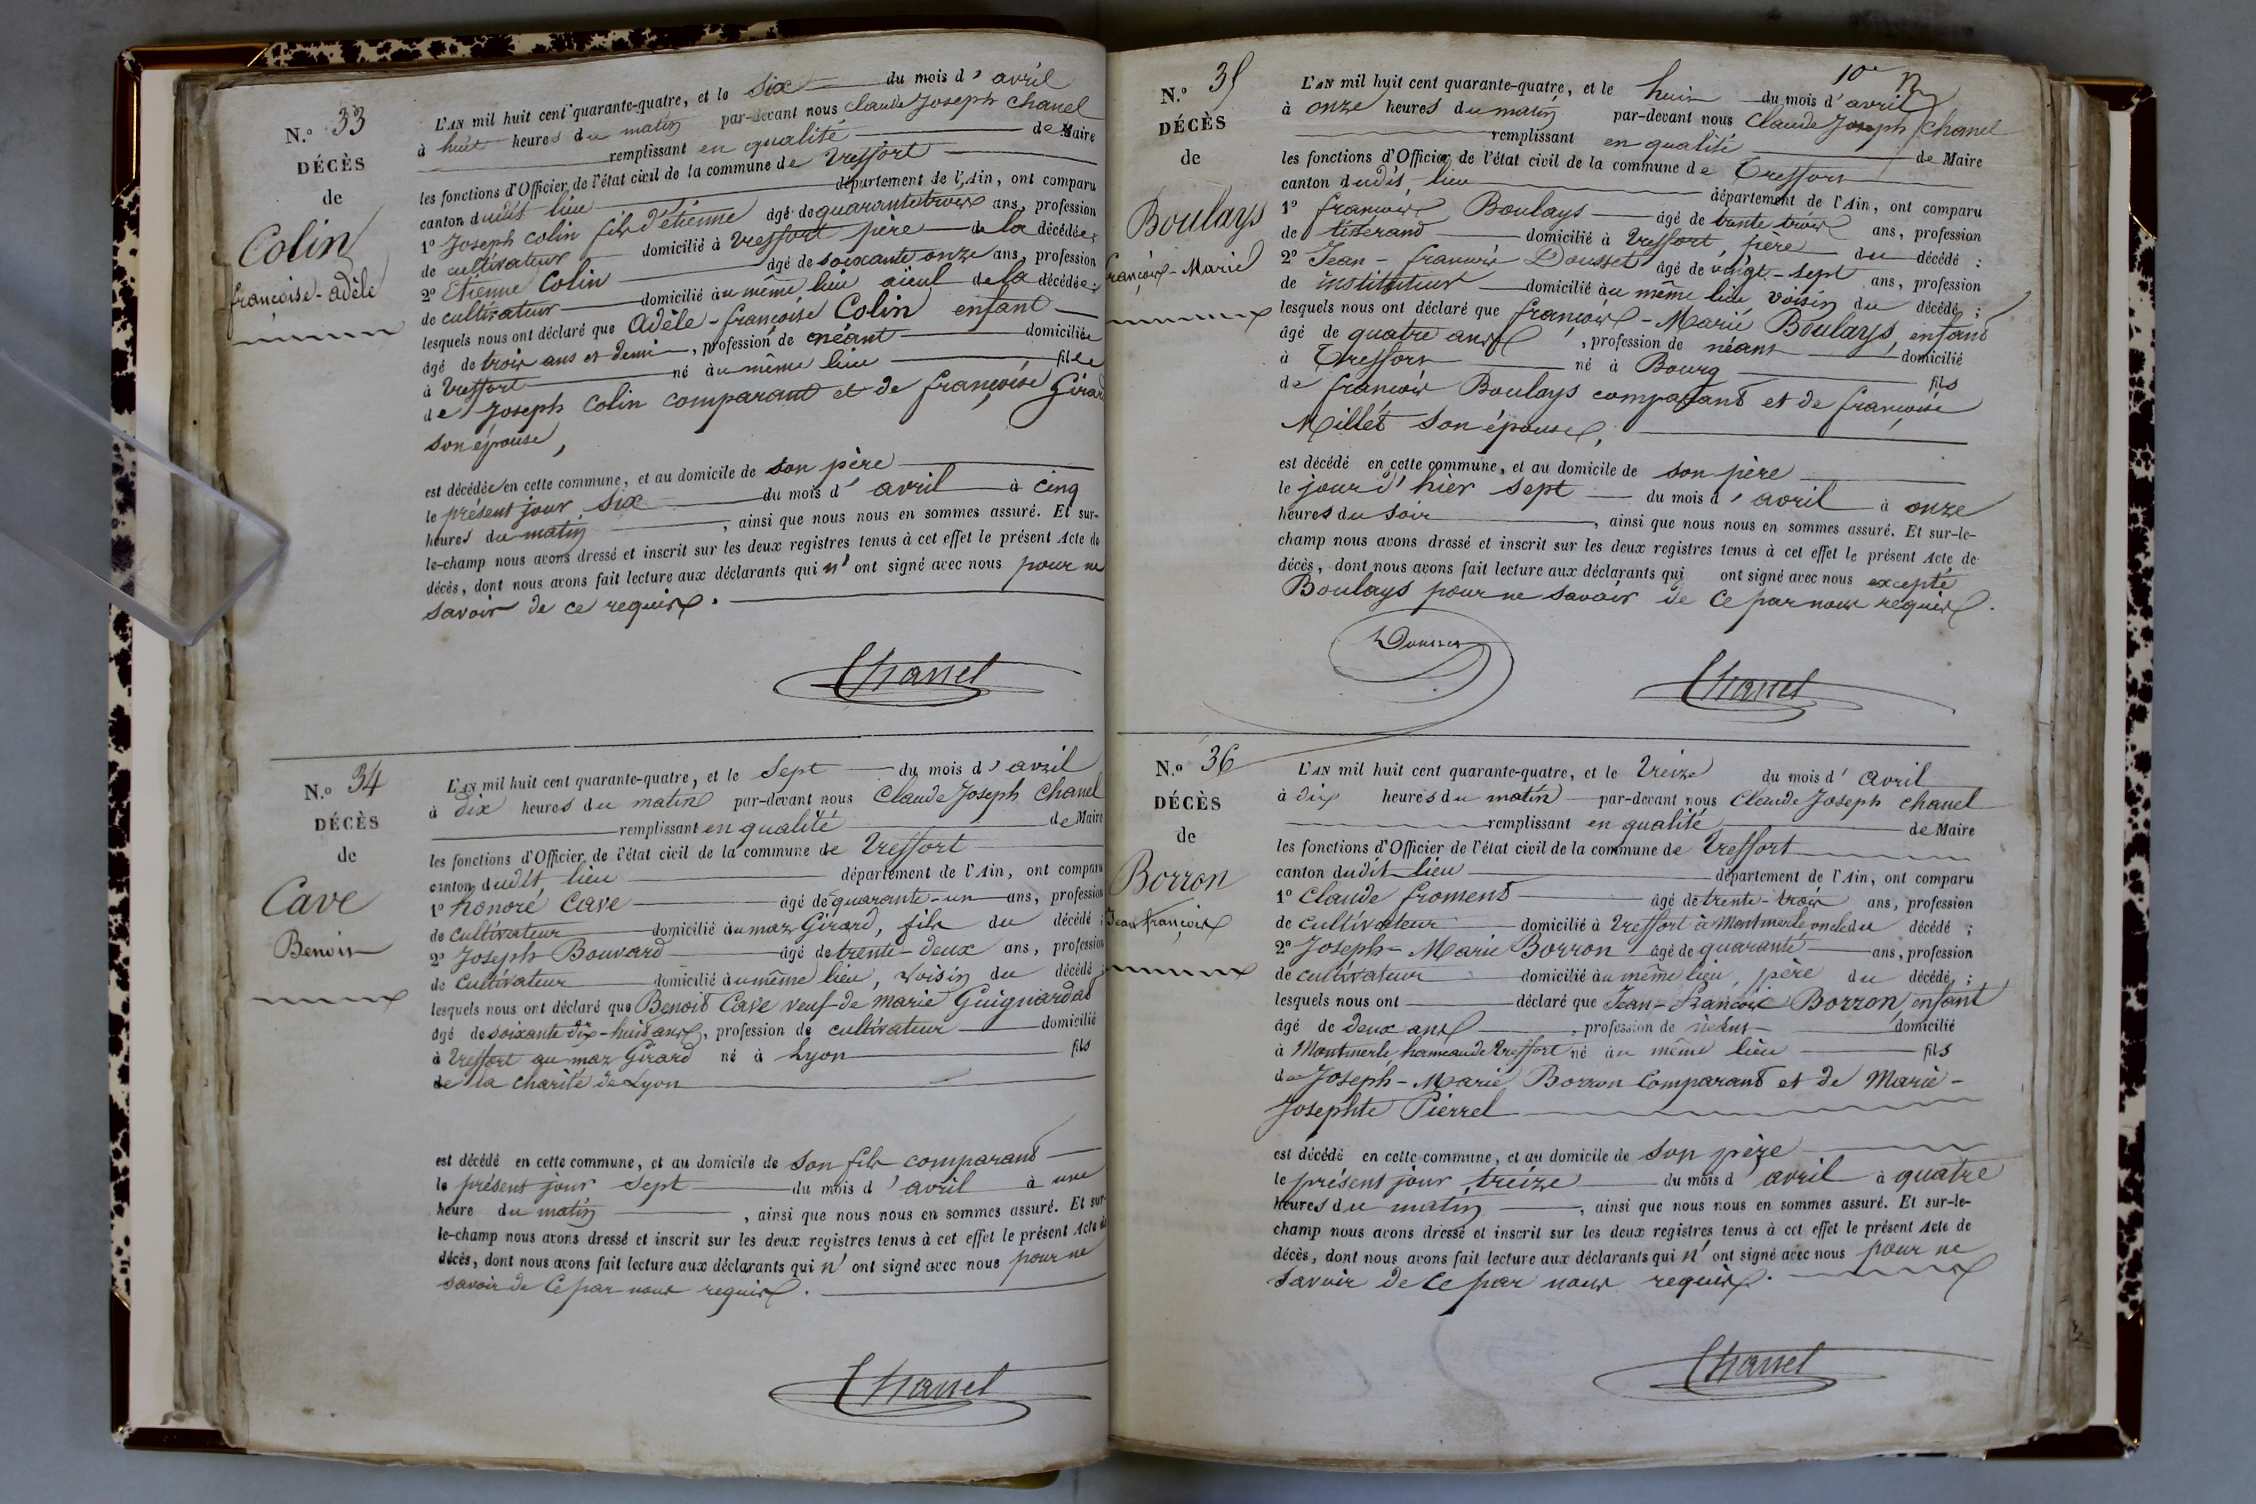 N.° 33
DÉCÈS
de
Colin
françoise-adèle
L'AN mil huit cent quarante-quatre, et le six du mois d'avril
à huit heures du matin par-devant nous Claude Joseph Chanel
remplissant en qualité de Maire
les fonctions d'Officier de l'état civil de la commune de Treffort
canton dudit lieu département de l'Ain, ont comparu
1° Joseph Colin fils d'étienne âgé de quarante trois ans, profession
de cultivateur domicilié à Treffort père de la décédée;
2° Etienne Colin âgé de soixante onze ans, profession
de cultivateur domicilié au même lieu aïeul de la décédée;
lesquels nous ont déclaré que Adèle-françoise Colin enfant
âgé de trois ans et demi, profession de néant domiciliée
à Treffort né au même lieu fille
de Joseph Colin comparant et de françoise Girard
son épouse,
est décédée en cette commune, et au domicile de son père
le présent jour six du mois d'avril à cinq
heures du matin, ainsi que nous nous en sommes assuré. Et sur-
le-champ nous avons dressé et inscrit sur les deux registres tenus à cet effet le présent Acte de
décès, dont nous avons fait lecture aux déclarants qui n'ont signé avec nous pour ne
savoir de ce requis.
Chanel
N.° 34
DÉCÈS
de
Cave
Benoit
L'AN mil huit cent quarante-quatre, et le sept du mois d'avril
à dix heures du matin par-devant nous Claude Joseph Chanel
remplissant en qualité de Maire
les fonctions d'Officier de l'état civil de la commune de Treffort
canton dudit lieu département de l'Ain, ont comparu
1° honoré Cave âgé de quarante-un ans, profession
de cultivateur domicilié au maz Girard, fils du décédé;
2° Joseph Bouvard âgé de trente-deux ans, profession
de cultivateur domicilié au même lieu, voisin du décédé;
lesquels nous ont déclaré que Benoit Cave veuf de marie Guignardat
âgé de soixante dix-huit ans, profession de cultivateur domicilié
à Treffort au maz Girard né à Lyon fils
de la charité de Lyon
est décédé en cette commune, et au domicile de son fils comparant
le présent jour sept du mois d'avril à une
heure du matin, ainsi que nous nous en sommes assuré. Et sur-
le-champ nous avons dressé et inscrit sur les deux registres tenus à cet effet le présent Acte de
décès, dont nous avons fait lecture aux déclarants qui n'ont signé avec nous pour ne
savoir de ce par nous requis.
Chanel
10e
N.° 35
DÉCÈS
de
Boulays
françois-Marie
L'AN mil huit cent quarante-quatre, et le huit du mois d'avril
à onze heures du matin par-devant nous Claude Joseph Chanel
remplissant en qualité de Maire
les fonctions d'Officier de l'état civil de la commune de Treffort
canton dudit lieu département de l'Ain, ont comparu
1° françois Boulays âgé de trente trois ans, profession
de tisserand domicilié à Treffort, père du décédé;
2° Jean-françois Dousset âgé de vingt-sept ans, profession
de instituteur domicilié au même lieu voisin du décédé;
lesquels nous ont déclaré que françois-Marie Boulays, enfant
âgé de quatre ans, profession de néant domicilié
à Treffort né à Bourg fils
de françois Boulays comparant et de françoise
Millet son épouse,
est décédé en cette commune, et au domicile de son père
le jour d'hier sept du mois d'avril à onze
heures du soir, ainsi que nous nous en sommes assuré. Et sur-le-
champ nous avons dressé et inscrit sur les deux registres tenus à cet effet le présent Acte de
décès, dont nous avons fait lecture aux déclarants qui ont signé avec nous excepté
Boulays pour ne savoir de ce par nous requis.
Dousset
Chanel
N.° 36
DÉCÈS
de
Borron
Jean françois
L'AN mil huit cent quarante-quatre, et le treize du mois d'avril
à dix heures du matin par-devant nous Claude Joseph Chanel
remplissant en qualité de Maire
les fonctions d'Officier de l'état civil de la commune de Treffort
canton dudit lieu département de l'Ain, ont comparu
1° Claude froment âgé de trente-trois ans, profession
de cultivateur domicilié à Treffort à Montmerle oncle du décédé;
2° Joseph-Marie Borron âgé de quarante ans, profession
de cultivateur domicilié au même lieu, père du décédé;
lesquels nous ont déclaré que Jean-françois Borron, enfant
âgé de deux ans, profession de néant domicilié
à Montmerle, hameau de Treffort né au même lieu fils
de Joseph-Marie Borron comparant et de Marie-
Josephte Pierrel
est décédé en cette commune, et au domicile de son père
le présent jour treize du mois d'avril à quatre
heures du matin, ainsi que nous nous en sommes assuré. Et sur-le-
champ nous avons dressé et inscrit sur les deux registres tenus à cet effet le présent Acte de
décès, dont nous avons fait lecture aux déclarants qui n'ont signé avec nous pour ne
savoir de ce par nous requis.
Chanel